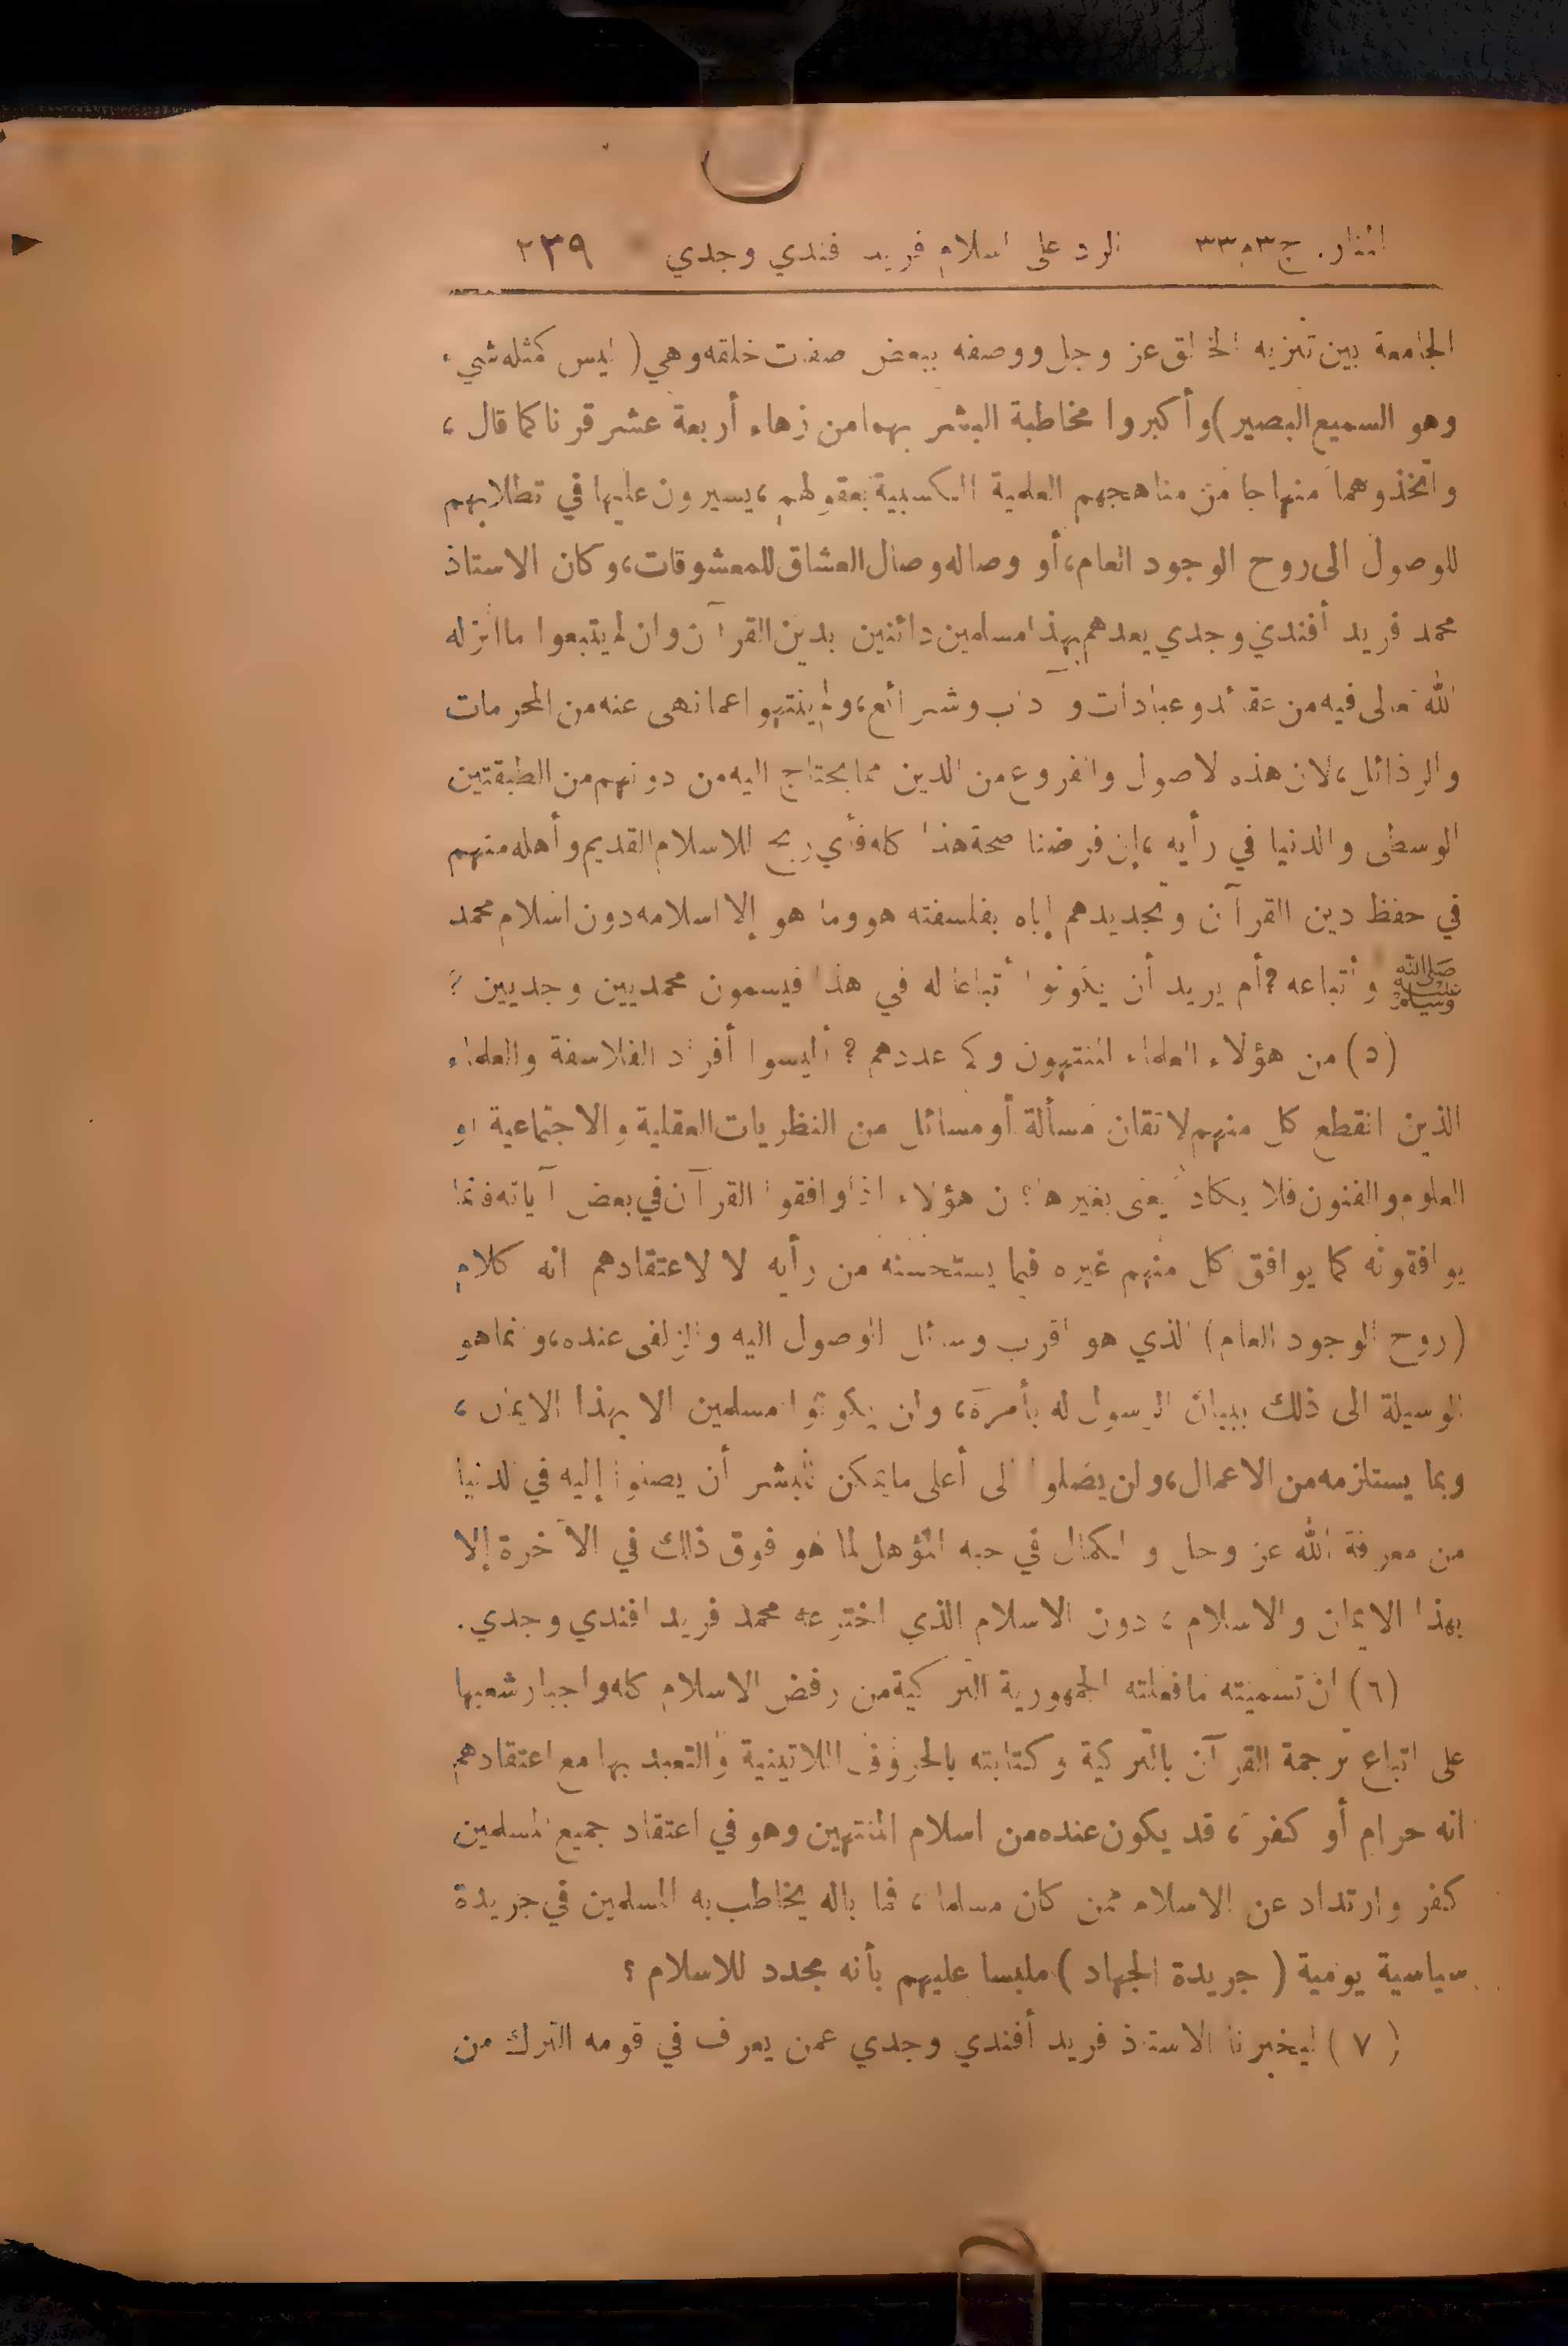 المنار. ج٣م٣٣ الرد على اسلام فريد فندي وجدي ٢٣٩
الجامعة بين تنزيه الخالق عز وجل ووصفه ببعض صفات خلقه وهي ( ليس كمثله شيء
وهو السميع البصير ) وأكبروا مخاطبة البشر بهما من زهاء أربعة عشر قرنا كما قال ،
واتخذوهما منهاجا من مناهجهم العلمية الكسبية بعقولهم ، يسيرون عليها في تطلابهم
للوصول الى روح الوجود العام ، أو وصاله وصال العشاق للمعشوقات ، وكان الاستاذ
محمد فريد أفندي وجدي يعدهم بهذا مسلمين دائنين بدين القرآن وان لم يتبعوا ما انزله
الله تعالى فيه من عقائد وعبادات وآداب وشرائع ، ولم ينتهوا عما نهى عنه من المحرمات
والرذائل ، لان هذه الاصول والفروع من الدين مما يحتاج اليه من دونهم من الطبقتين
الوسطى والدنيا في رأيه ، إن فرضنا صحة هذا كله فأي ربح للاسلام القديم وأهله منهم
في حفظ دين القرآن وتجديدهم إياه بفلسفته هو وما هو إلا اسلامه دون اسلام محمد
ﷺ وأتباعه ؟ أم يريد أن يكونوا أتباعا له في هذا فيسمون محمديين وجديين ؟
(٥) من هؤلاء العلماء المنتهون وكم عددهم ؟ أليسوا أفراد الفلاسفة والعلماء
الذين انقطع كل منهم لاتقان مسألة أو مسائل من النظريات العقلية والاجتماعية او
العلوم والفنون فلا يكاد يعنى بغيرها ؟ ان هؤلاء اذا وافقوا القرآن في بعض آياته فانما
يوافقونه كما يوافق كل منهم غيره فيما يستحسنه من رأيه لا لاعتقادهم انه كلام
(روح الوجود العام) الذي هو اقرب وسائل الوصول اليه والزلفى عنده ، وانما هو
الوسيلة الى ذلك ببيان الرسول له بأمره ، وان يكونوا مسلمين الا بهذا الايمان ،
وبما يستلزمه من الاعمال ، ولن يصلوا الى أعلى ما يمكن للبشر أن يصلوا إليه في الدنيا
من معرفة الله عز وجل والكمال في حبه المؤهل لما هو فوق ذلك في الآخرة إلا
بهذا الايمان والاسلام ، دون الاسلام الذي اخترعه محمد فريد افندي وجدي .
(٦) ان تسميته ما فعلته الجمهورية التركية من رفض الاسلام كله واجبار شعبها
على اتباع ترجمة القرآن بالتركية وكتابته بالحروف اللاتينية والتعبد بها مع اعتقادهم
انه حرام أو كفر ، قد يكون عنده من اسلام المنتهين وهو في اعتقاد جميع المسلمين
كفر وارتداد عن الاسلام ممن كان مسلما ، فما باله يخاطب به المسلمين في جريدة
سياسية يومية ( جريدة الجهاد ) ملبسا عليهم بأنه مجدد للاسلام ؟
( ٧ ) ليخبرنا الاستاذ فريد أفندي وجدي عمن يعرف في قومه الترك من